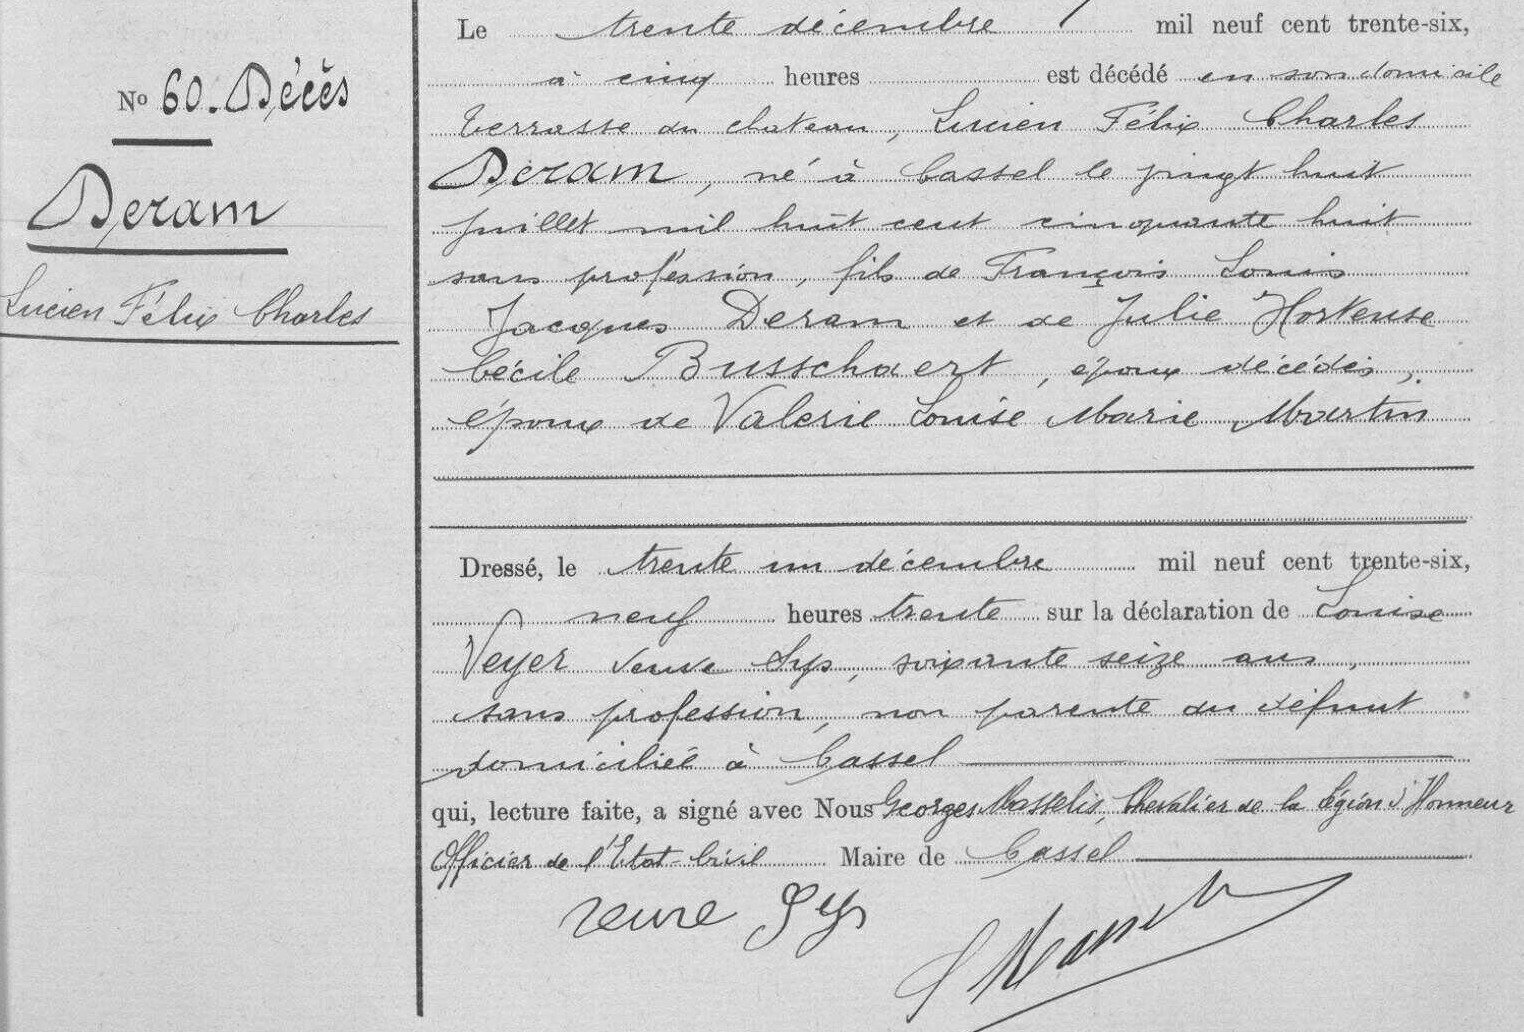 No 60. Décès
Deram
Lucien Félix Charles
Le trente décembre mil neuf cent trente-six,
à cinq heures est décédé en son domicile
terrasse du chateau, Lucien Félix Charles
Deram, né à Cassel le vingt huit
juillet mil huit cent cinquante huit
sans profession, fils de François Louis
Jacques Deram et de Julie Hortense
Cécile Busschaert, époux décédés,
époux de Valerie Louise Marie Martin
Dressé, le trente un décembre mil neuf cent trente-six,
neuf heures trente sur la déclaration de Louise
Veyer veuve Sys, soixante seize ans,
sans profession, non parente du défunt
domiciliée à Cassel
qui, lecture faite, a signé avec Nous Georges Masselis, Chevalier de la Légion d'Honneur
Officier de l'Etat-Civil Maire de Cassel
veuve Sys